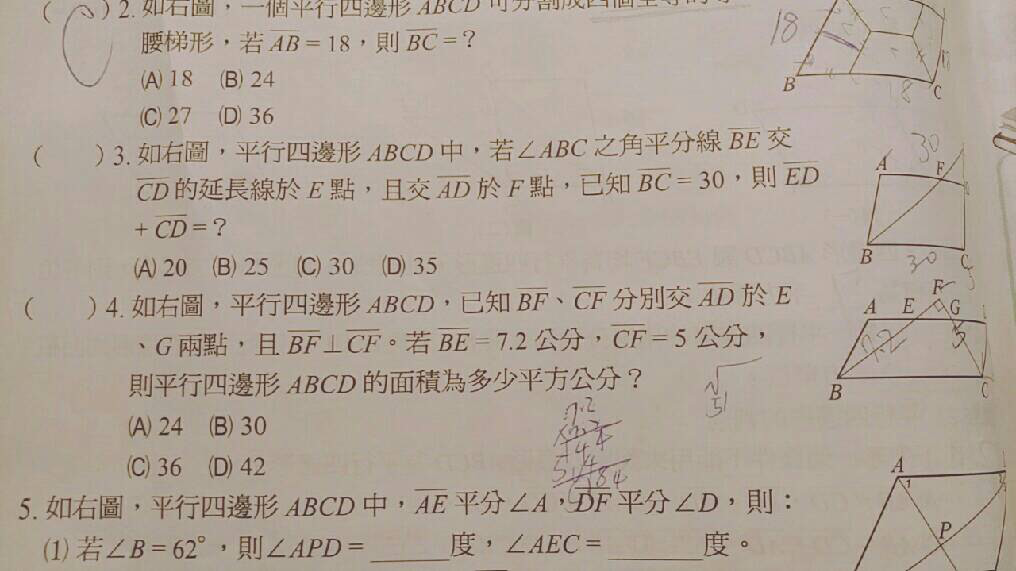 ( )2. 如右圖，一個平行四邊形 ABCD 可分割成四個全等的等
腰梯形，若 AB = 18，則 BC = ？
(A) 18 (B) 24
(C) 27 (D) 36
18
B
18
C
( )3. 如右圖，平行四邊形 ABCD 中，若∠ABC 之角平分線 BE 交
CD 的延長線於 E 點，且交 AD 於 F 點，已知 BC = 30，則 ED
+ CD = ？
(A) 20 (B) 25 (C) 30 (D) 35
30
A F
B C
30
( )4. 如右圖，平行四邊形 ABCD，已知 BF、CF 分別交 AD 於 E
、G 兩點，且 BF⊥CF。若 BE = 7.2 公分，CF = 5 公分，
則平行四邊形 ABCD 的面積為多少平方公分？
(A) 24 (B) 30
(C) 36 (D) 42
F
A E G
7.2 5
B C
5. 如右圖，平行四邊形 ABCD 中，AE 平分∠A，DF 平分∠D，則：
(1) 若∠B = 62°，則∠APD = ______ 度，∠AEC = ______ 度。
A
P